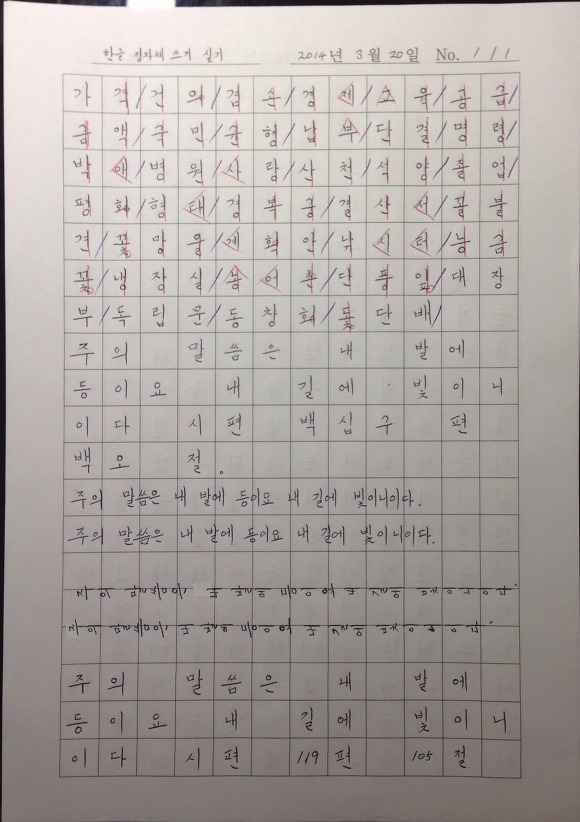 한글 정자체 쓰기 실기 2014년 3월 20일 No. 1/1
가격/건의/겸손/경제/교육/공급/
금액/국민/균형/납부/단결/명령/
박애/병원/사랑/산천/석양/졸업/
평화/형대/경복궁/결산서/꼴불
견/꽃망울/계획안/낚시터/능금
꽃/냉장실/농어촌/단풍잎/대장
부/독립문/동창회/돛단배/
주의 말씀은 내 발에
등이요 내 길에 빛이니
이다 시편 백십구 편
백오 절.
주의 말씀은 내 발에 등이요 내 길에 빛이니이다.
주의 말씀은 내 발에 등이요 내 길에 빛이니이다.
주의 말씀은 내 발에
등이요 내 길에 빛이니
이다 시편 119편 105절